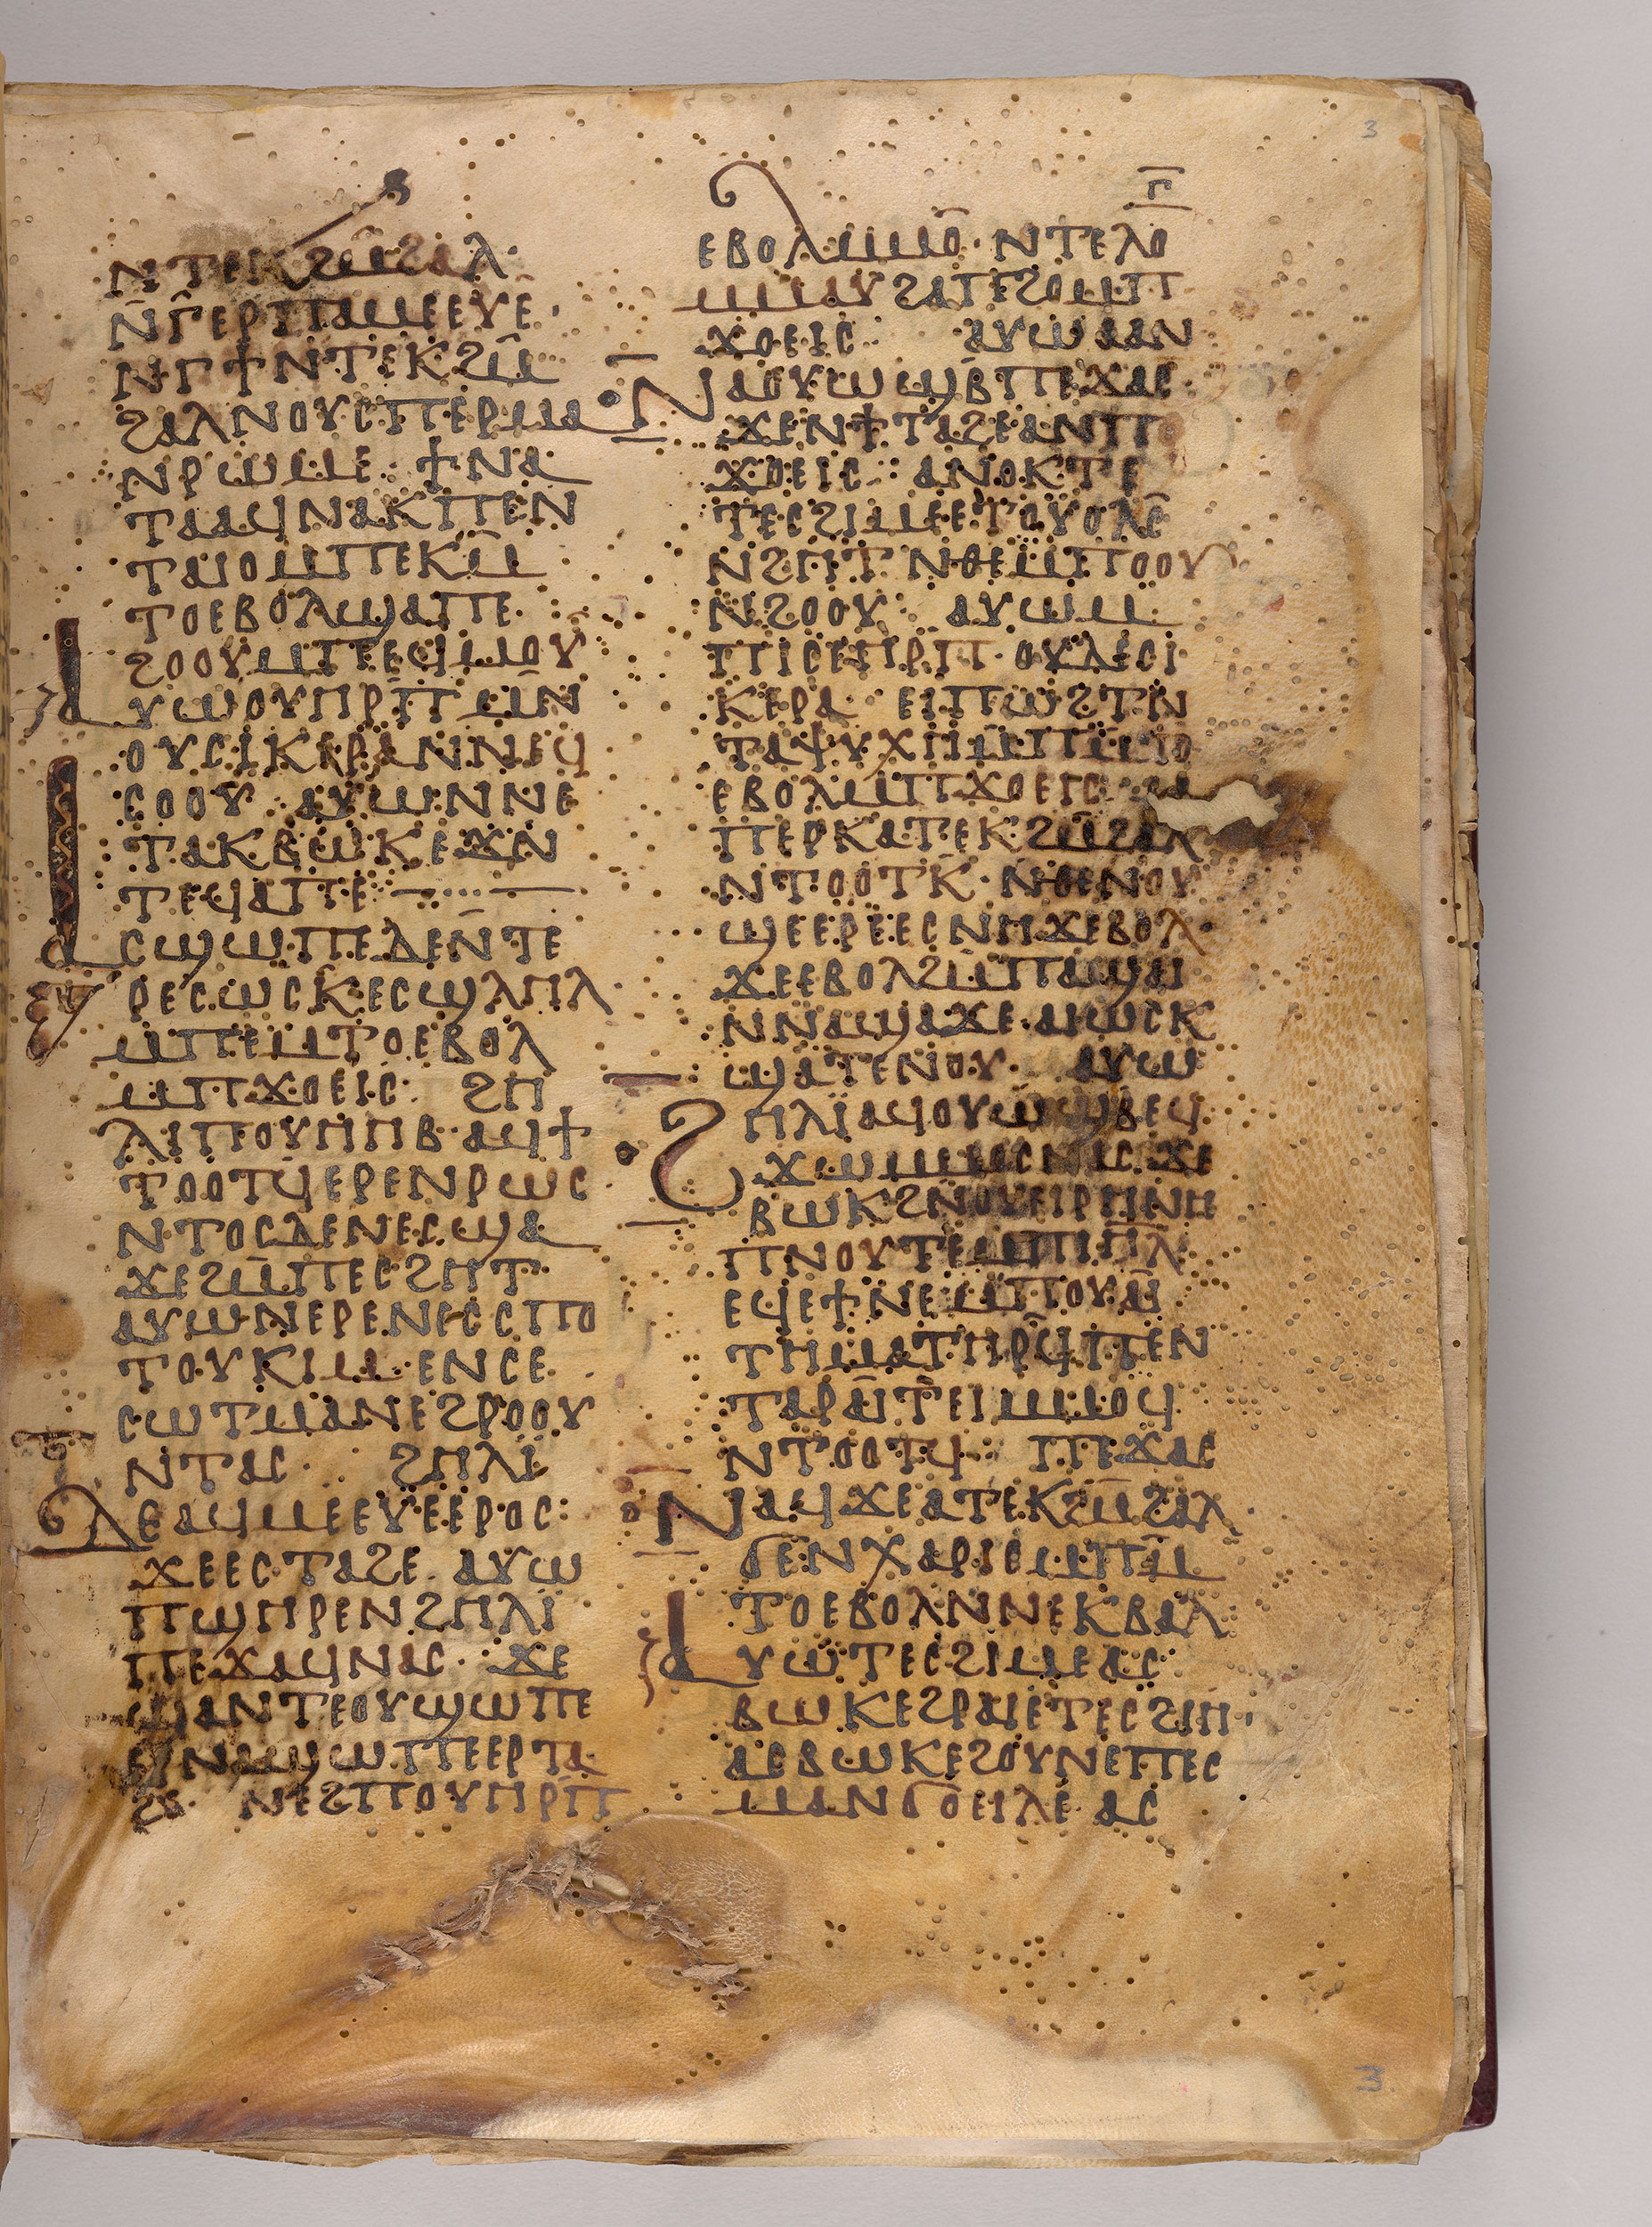 3
ⲛⲧⲉⲕϩⲙ̄ϩⲁⲗ·
ⲛ̄ⲅ̄ⲉⲣⲡⲁⲙⲉⲉⲩⲉ̄·
ⲛⲅϯⲛⲧⲉⲕϩⲙ̄
ϩⲁⲗⲛⲟⲩⲥⲡⲉⲣⲙⲁ
ⲛⲣⲱⲙⲉ: ϯⲛⲁ
ⲧⲁⲁϥⲛⲁⲕⲡⲉⲛ
ⲧⲁⲓⲟⲙⲡⲉⲕⲙ̄
ⲧⲟⲉⲃⲟⲗϣⲁⲡⲉ
ϩⲟⲟⲩⲙⲡⲉϥⲙⲟⲩ
ⲁⲩⲱⲟⲩⲏⲣⲡ̄ⲙ̄ⲛ
ⲟⲩⲥⲓⲕⲉⲣⲁⲛⲛⲉϥ
ⲥⲟⲟⲩ ⲁⲩⲱⲛⲛⲉ
ⲧⲁⲕⲃⲱⲕⲉϫⲛ
ⲧⲉϥⲁⲡⲉ
ⲁⲥϣⲱⲡⲉⲇⲉⲛ̄ⲧⲉ
ⲣⲉⲥⲱⲥⲕ̄ⲉⲥϣⲗⲏⲗ
ⲙⲡⲉⲙⲧⲟⲉⲃⲟⲗ
ⲙⲡϫⲟⲉⲓⲥ: ϩⲏ
ⲗⲓⲡⲟⲩⲏⲏⲃ ⲁϥϯ
ⲧⲟⲟⲧϥⲉⲣⲉⲛⲣⲱⲥ
ⲛⲧⲟⲥⲇⲉⲛⲉⲥϣⲁ
ϫⲉϩⲙ̄ⲡⲉⲥϩⲏⲧ·
ⲁⲩⲱⲛⲉⲣⲉⲛⲉⲥⲥⲡⲟ
ⲧⲟⲩⲕⲓⲙ·ⲉⲛⲥⲉ
ⲥⲱⲧⲙⲁⲛⲉϩⲣⲟⲟⲩ
ⲛⲧⲁⲥ· ϩⲏⲗⲓ̈
ⲇⲉⲁϥⲙⲉⲉⲩⲉⲉⲣⲟⲥ:
ϫⲉⲉⲥⲧⲁϩⲉ ⲁⲩⲱ
ⲡϣⲏⲣⲉⲛϩⲏⲗⲓ̈
ⲡⲉϫⲁϥⲛⲁⲥ· ϫⲉ
ϣⲁⲛⲧⲉⲟⲩϣⲱⲡⲉ
ⲉⲣⲛⲁϣⲱⲡⲉⲉⲣⲧⲁ
ϩⲉ· ⲛⲉϩⲡⲟⲩⲏⲣⲡ̄
ⲅ̄
ⲉⲃⲟⲗⲙⲙⲟ̄· ⲛⲧⲉⲗⲟ
ⲙⲙⲁⲩϩⲁⲧⲉϩⲟⲙⲡ
ϫⲟⲉⲓⲥ: ⲁⲩⲱⲁⲁⲛ
ⲛⲁⲟⲩⲱϣⲃ̄ⲡⲉϫⲁⲥ·
ϫⲉⲛϯⲧⲁϩⲉⲁⲛⲡ
ϫⲟⲉⲓⲥ: ⲁⲛⲟⲕⲧⲉ
ⲧⲉⲥϩⲓⲙⲉⲉⲧⲟⲩⲟⲗⲥ̄
ⲛϩⲏⲧ ⲛⲑⲉⲙⲡⲟⲟⲩ
ⲛϩⲟⲟⲩ: ⲁⲩⲱⲙ
ⲡⲓⲥⲉⲏⲣⲡ· ⲟⲩⲇⲉⲥⲓ
ⲕⲉⲣⲁ· ⲉⲓⲡⲱϩⲧⲛ
ⲧⲁⲯⲩⲭⲏⲙⲡⲙ̄ⲧⲟ
ⲉⲃⲟⲗⲙⲡϫⲟⲉⲓⲥ: ⲙ
ⲡⲉⲣⲕⲁⲧⲉⲕϩⲙ̄ϩⲁⲗ
ⲛⲧⲟⲟⲧⲕ̄· ⲛⲑⲉⲛⲟⲩ
ϣⲉⲉⲣⲉⲉⲥⲛⲏϫⲉⲃⲟⲗ·
ϫⲉⲉⲃⲟⲗϩⲙ̄ⲡⲁϣⲁⲓ
ⲛⲛⲁϣⲁϫⲉ·ⲁⲓⲱⲥⲕ
ϣⲁⲧⲉⲛⲟⲩ· ⲁⲩⲱ
ϩⲏⲗⲓ̈ⲁϥⲟⲩⲱϣⲃⲉϥ
ϫⲱⲙⲙⲟⲥⲛⲁⲥ ϫⲉ
ⲃⲱⲕϩⲛⲟⲩⲉⲓⲣⲏⲛⲏ
ⲡⲛⲟⲩⲧⲉⲙⲡⲓⲏ̄ⲗ
ⲉϥⲉϯⲛⲉⲙⲡⲟⲩⲁⲓ̈
ⲧⲏⲙⲁⲧⲏⲣϥ̄ⲡⲉⲛ
ⲧⲁⲣⲁⲓ̈ⲧⲉⲓⲙⲙⲟϥ
ⲛⲧⲟⲟⲧϥ: ⲡⲉϫⲁⲥ
ⲛⲁϥϫⲉⲁⲧⲉⲕϩⲙ̄ϩⲁⲗ
ϭⲉⲛⲭⲁⲣⲓⲥⲙⲡⲙ̄
ⲧⲟⲉⲃⲟⲗⲛⲛⲉⲕⲃⲁⲗ
ⲁⲩⲱⲧⲉⲥϩⲓⲙⲉⲁⲥ
ⲃⲱⲕⲉϩⲣⲁⲓⲉⲧⲉⲥϩⲓⲏ·
ⲁⲥⲃⲱⲕⲉϩⲟⲩⲛⲉⲡⲉⲥ
ⲙⲁⲛϭⲟⲉⲓⲗⲉ ⲁⲥ
3